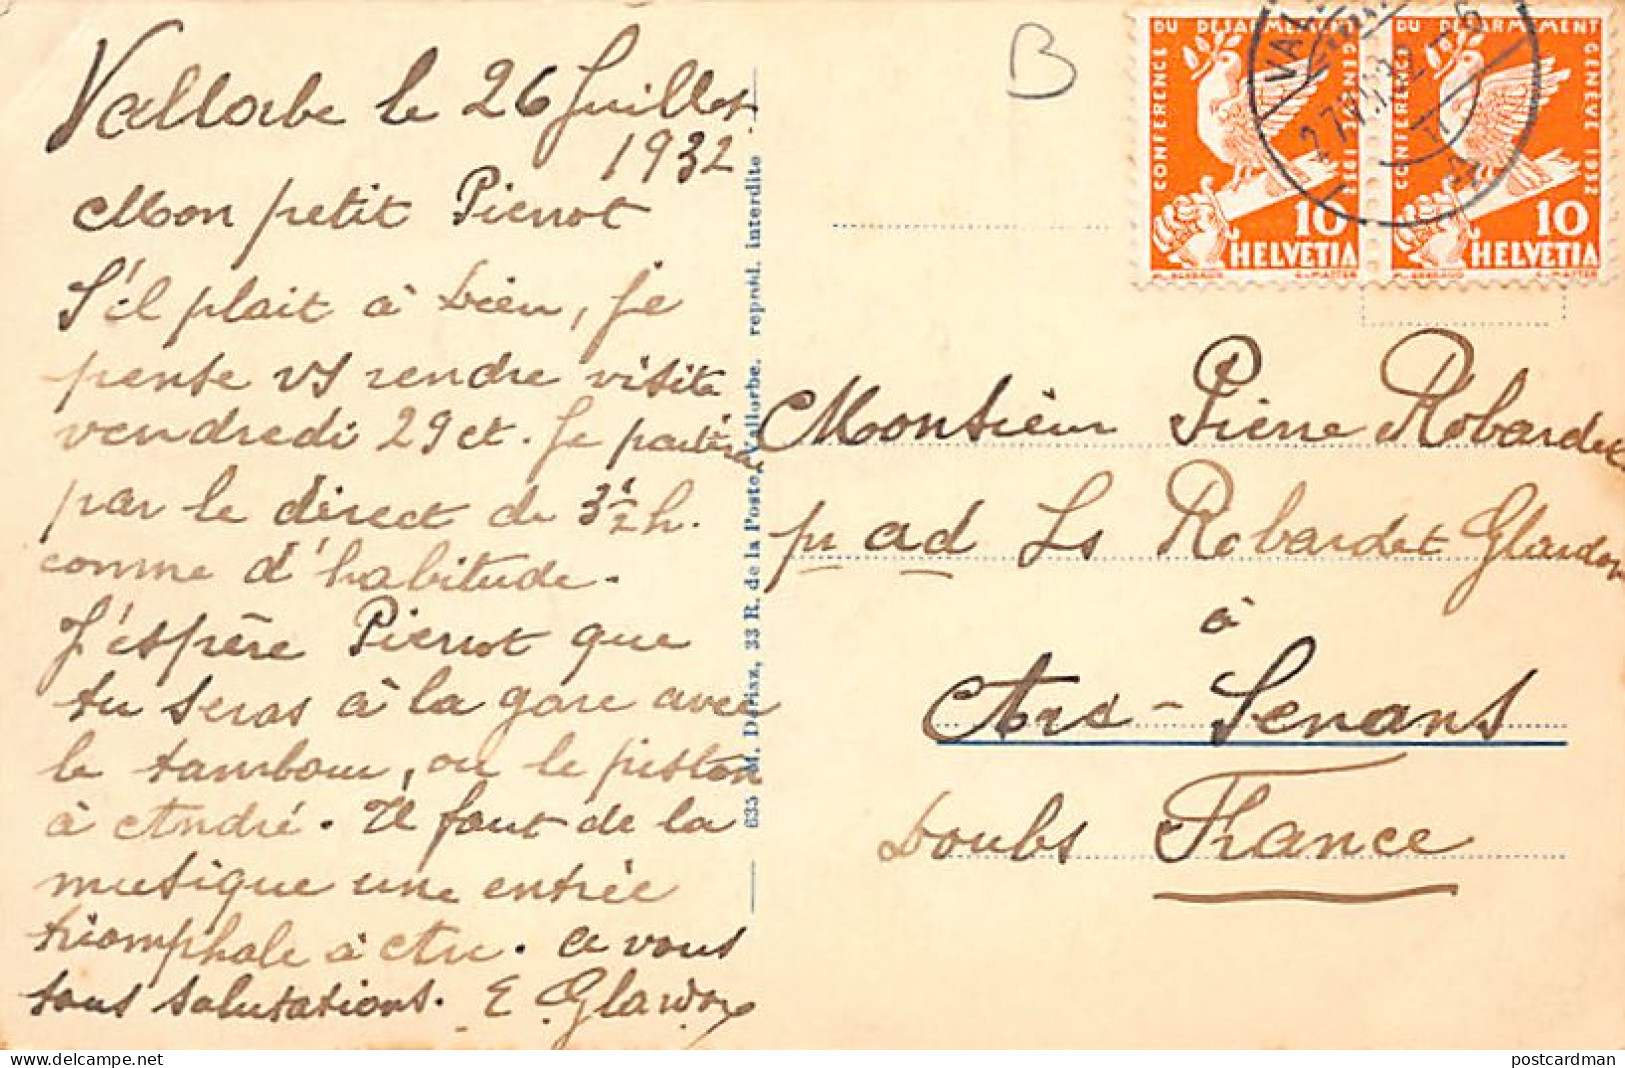 Vallorbe le 26 Juillet
1932
Mon petit Pierrot
S'il plait à Dieu, je
pense vs rendre visite
vendredi 29 ct. Je partirai
par le direct de 3 1/2 h.
comme d'habitude.
J'espère Pierrot que
tu seras à la gare avec
le tambour, ou le piston
à André. Il faut de la
musique une entrée
triomphale à Arc. A vous
tous salutations. E. Glardon
635 M. Deriaz, 33 R. de la Poste, Vallorbe. reprod. interdite
B
CONFERENCE DU DESARMEMENT GENEVE 1932
10
HELVETIA
CONFERENCE DU DESARMEMENT GENEVE 1932
10
HELVETIA
Monsieur Pierre Robardet
pr ad Ls Robardet Glardon
à
Arc-Senans
Doubs France
postcardman